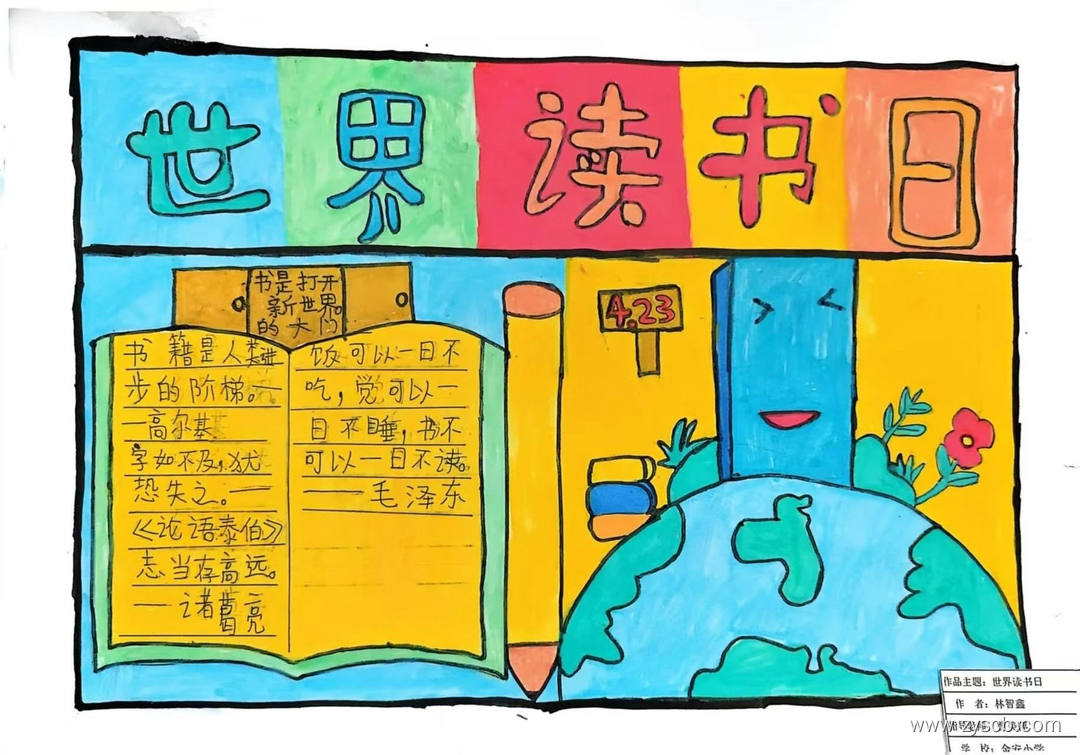 世界读书日
书是打开
新世界
的大门
书籍是人类进
步的阶梯。一
一高尔基
学如不及,犹
恐失之。一
《论语泰伯》
志当存高远。
一诸葛亮
饭可以一日不
吃,觉可以一
日不睡,书不
可以一日不读。
——毛泽东
4.23
作品主题:世界读书日
作 者:林智鑫
学 校:金安小学